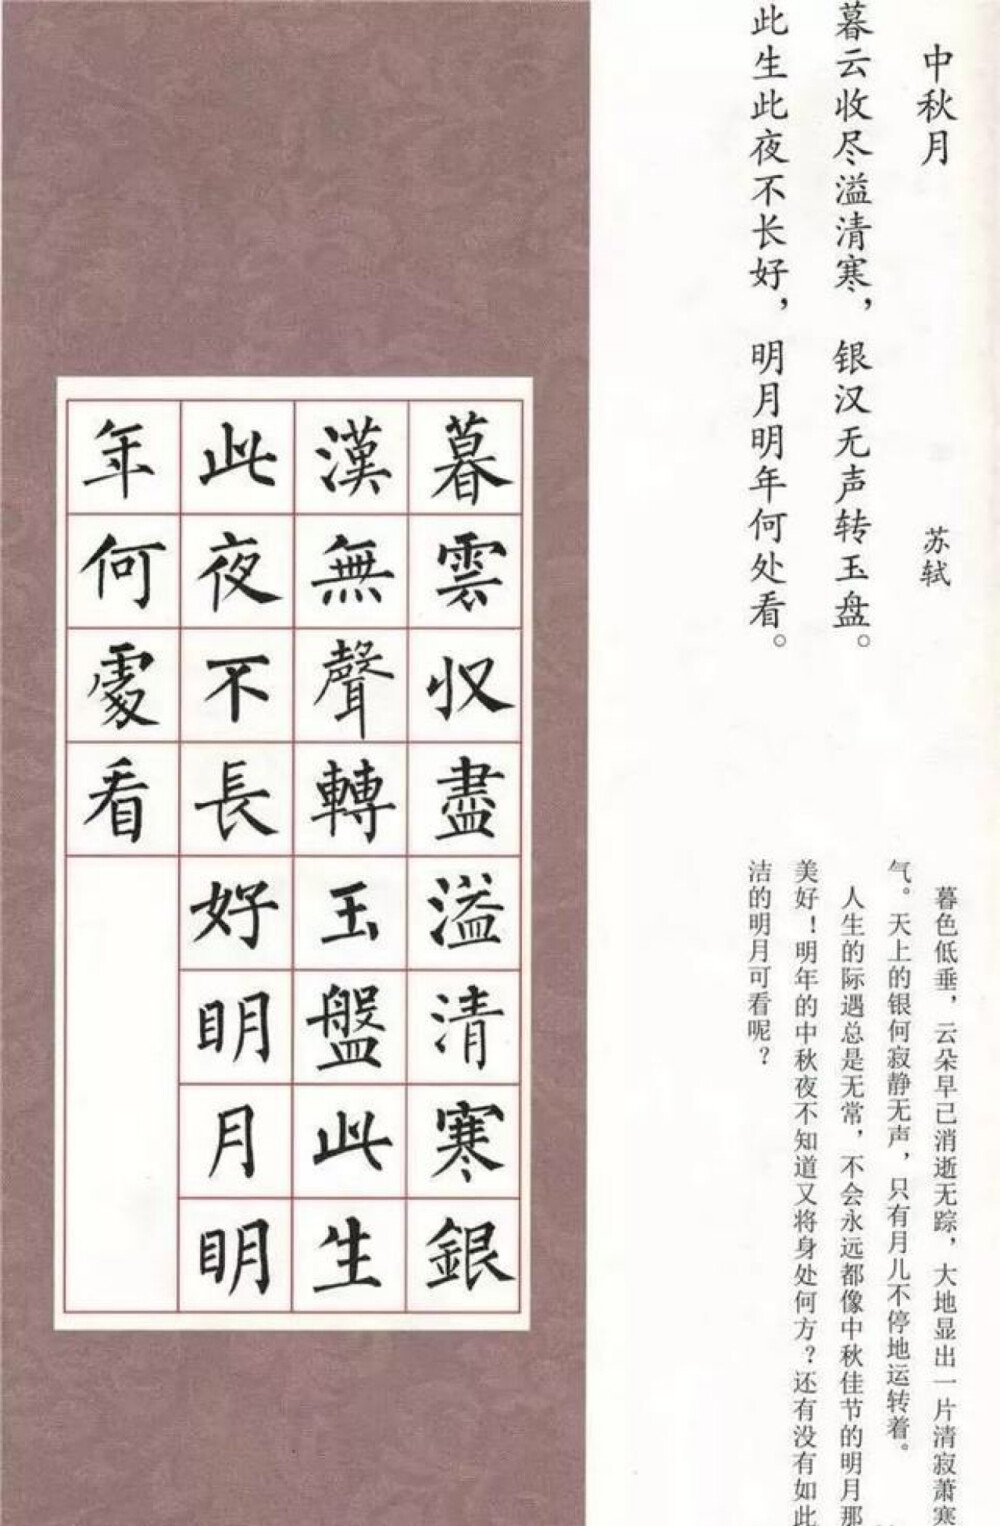 中秋月
苏轼
暮云收尽溢清寒，银汉无声转玉盘。
此生此夜不长好，明月明年何处看。
暮色低垂，云朵早已消逝无踪，大地显出一片清寂萧寒
气。天上的银何寂静无声，只有月儿不停地运转着。
人生的际遇总是无常，不会永远都像中秋佳节的明月那
美好！明年的中秋夜不知道又将身处何方？还有没有如此
洁的明月可看呢？
暮雲収盡溢清寒銀
漢無聲轉玉盤此生
此夜不長好明月明
年何處看